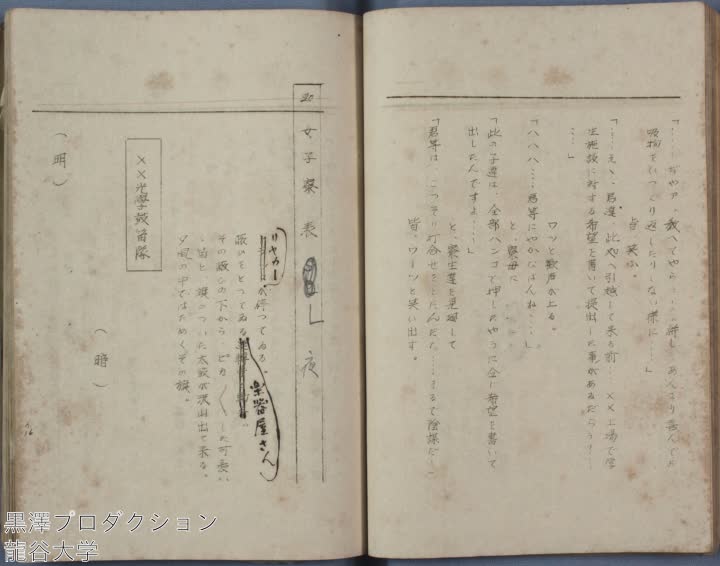 「……ぢやア、教へてやらう……併し、あんまり喜んでお
吸物をひつくり返したりしない様に……」
皆、笑ふ。
「……えゝ、君達、此処へ引越して来る前、××工場で空
生施設に対する希望を書いて提出した事があるだらう……
……」
ワツと歓声が上る。
「ハハハ……君等にやかなはんね……」
と、寮母に、
「此の子達は、全部ハンコで押したやうに全じ希望を書いて
出したんですよ……」
と、寮生達を見廻して
「君等は、こつそり打合せをしたんだな……まるで陰謀だ……」
皆、ワーツと笑い出す。
20 女子寮表 夜
リヤカーが待つてゐる。
賑ひをとてゐる楽器屋さん
その賑ひの下から、ピカ〱した可愛い
笛と、旗のついた太鼓が沢山出て来る。
夕風の中ではためくその旗。
(暗)
××光學鼓笛隊
(明)
黒澤プロダクション
龍谷大学